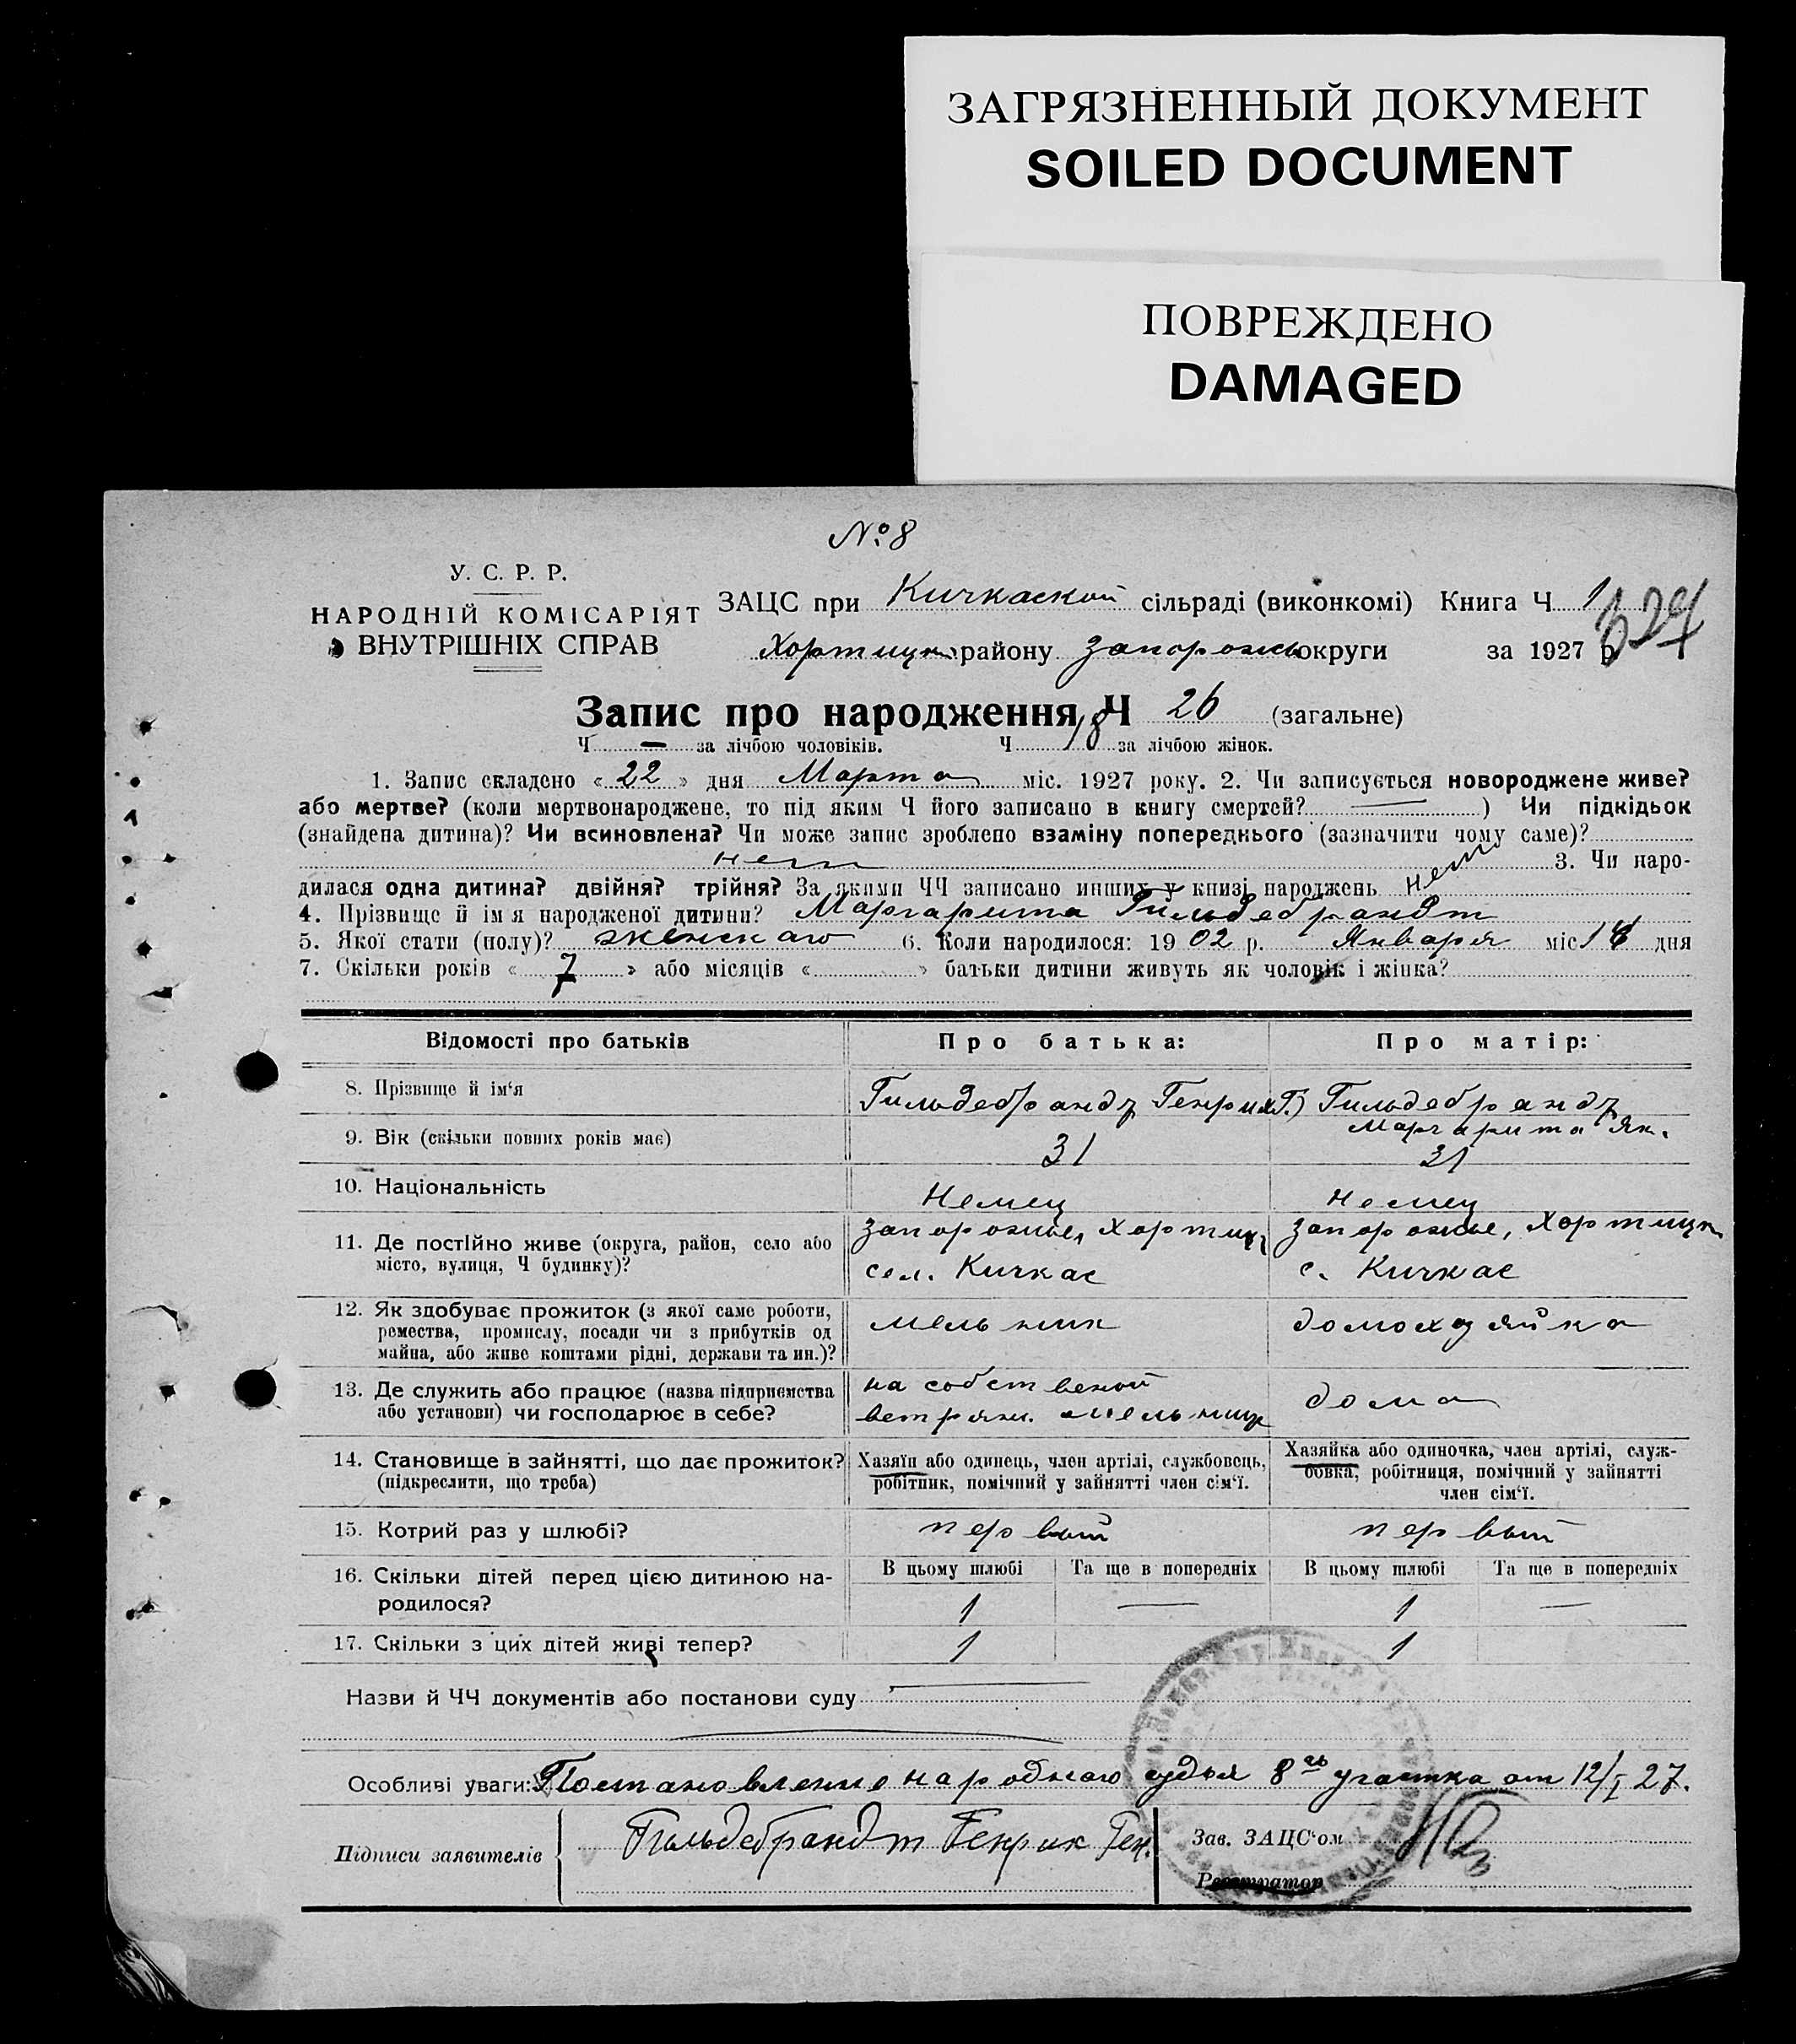 ЗАГРЯЗНЕННЫЙ ДОКУМЕНТ
SOILED DOCUMENT
ПОВРЕЖДЕНО
DAMAGED
№ 8
У. С. Р. Р.
НАРОДНІЙ КОМІСАРІЯТ
ВНУТРІШНІХ СПРАВ
ЗАЦС при Кичкаской сільраді (виконкомі) Книга Ч 1
Хортицк району Запорожь округи за 1927 р.
Запис про народження Ч 26 (загальне)
Ч — за лічбою чоловіків. Ч 18 за лічбою жінок.
1. Запис складено « 22 » дня Марта міс. 1927 року. 2. Чи записується новороджене живе?
або мертве? (коли мертвонароджене, то під яким Ч його записано в книгу смертей? — ) Чи підкідьок
(знайдена дитина)? Чи всиновлена? Чи може запис зроблено взаміну попереднього (зазначити чому саме)?
нет 3. Чи наро-
дилася одна дитина? двійня? трійня? За якими ЧЧ записано инших у книзі народжень нет
4. Прізвище й ім'я народженої дитини? Маргарита Гильдебрандт
5. Якої стати (полу)? женскаго 6. Коли народилося: 1902 р. Января міс дня
7. Скільки років « 7 » або місяців « » батьки дитини живуть як чоловік і жінка?
Відомості про батьків Про батька: Про матір:
8. Прізвище й ім'я Гильдебрандт Генрих Г. Гильдебрандт
Маргарита Як.
9. Вік (скільки повних років має) 31 31
10. Національність Немец немец
11. Де постійно живе (округа, район, село або місто, вулиця, Ч будинку)?
Запорожье, Хортиц
сел. Кичкас
Запорожье, Хортицк
с. Кичкас
12. Як здобуває прожиток (з якої саме роботи,
ремества, промислу, посади чи з прибутків од
майна, або живе коштами рідні, держави та ин.)?
мельник домохозяйка
13. Де служить або працює (назва підприємства
або установи) чи господарює в себе?
на собственой
ветрян. мельнице
дома
14. Становище в зайнятті, що дає прожиток?
(підкреслити, що треба)
Хазяїн або одинець, член артілі, службовець,
робітник, помічний у зайнятті член сім'ї.
Хазяйка або одиночка, член артілі, служ-
бовка, робітниця, помічний у зайнятті
член сім'ї.
15. Котрий раз у шлюбі? первый первый
16. Скільки дітей перед цією дитиною на-
родилося?
В цьому шлюбі Та ще в попередніх В цьому шлюбі Та ще в попередніх
1 — 1 —
17. Скільки з цих дітей живі тепер? 1 1
Назви й ЧЧ документів або постанови суду —
Особливі уваги: Постановление народного судья 8го участка от 12/I 27.
Підписи заявителів Гильдебрандт Генрих Ген.
Зав. ЗАЦС'ом
Реєстратор